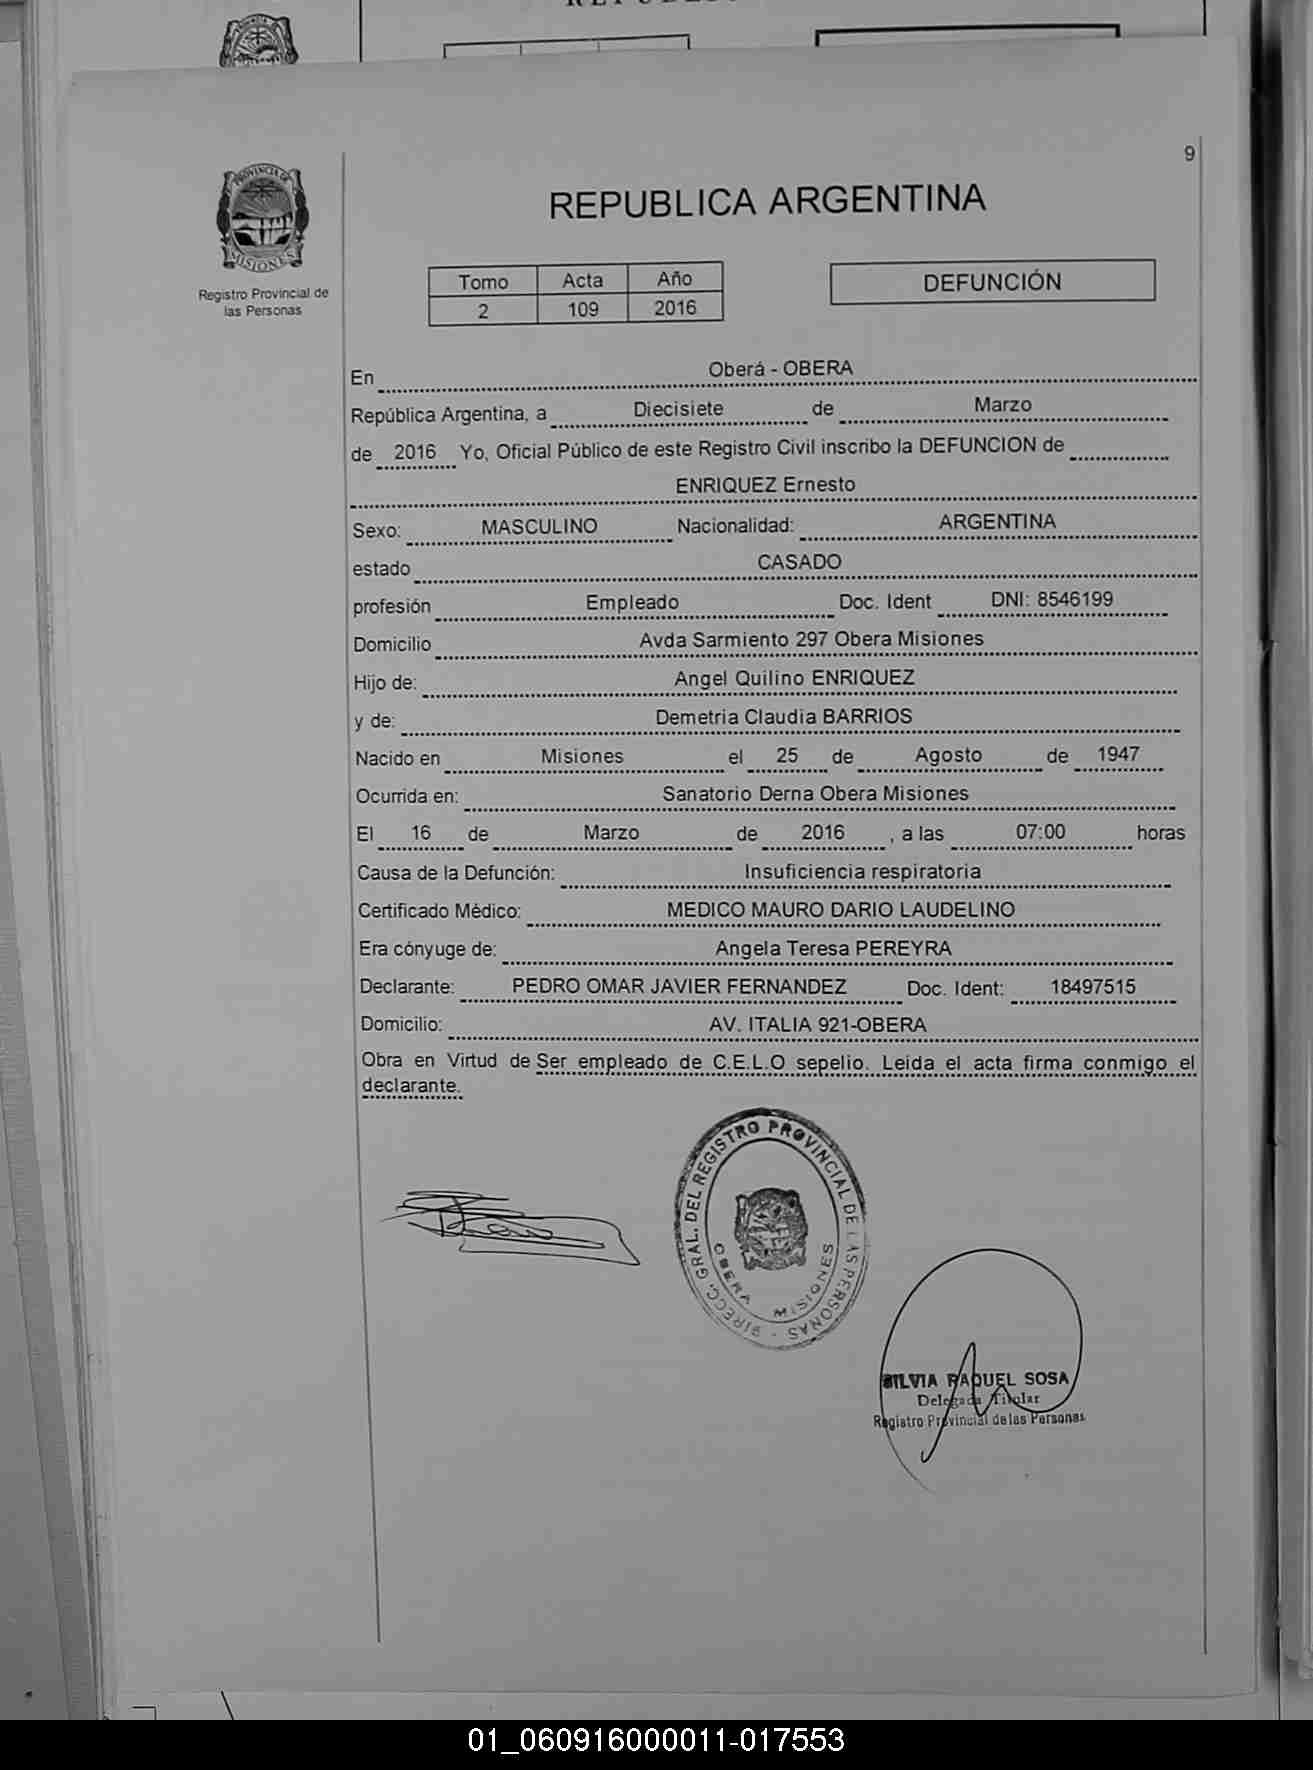 PROVINCIA DE
MISIONES
Registro Provincial de
las Personas
9
REPUBLICA ARGENTINA
Tomo Acta Año
2 109 2016
DEFUNCIÓN
En Oberá - OBERA
República Argentina, a Diecisiete de Marzo
de 2016 Yo, Oficial Público de este Registro Civil inscribo la DEFUNCION de
ENRIQUEZ Ernesto
Sexo: MASCULINO Nacionalidad: ARGENTINA
estado CASADO
profesión Empleado Doc. Ident DNI: 8546199
Domicilio Avda Sarmiento 297 Obera Misiones
Hijo de: Angel Quilino ENRIQUEZ
y de: Demetria Claudia BARRIOS
Nacido en Misiones el 25 de Agosto de 1947
Ocurrida en: Sanatorio Derna Obera Misiones
El 16 de Marzo de 2016 , a las 07:00 horas
Causa de la Defunción: Insuficiencia respiratoria
Certificado Médico: MEDICO MAURO DARIO LAUDELINO
Era cónyuge de: Angela Teresa PEREYRA
Declarante: PEDRO OMAR JAVIER FERNANDEZ Doc. Ident: 18497515
Domicilio: AV. ITALIA 921-OBERA
Obra en Virtud de Ser empleado de C.E.L.O sepelio. Leida el acta firma conmigo el
declarante.
DIRECC. GRAL. DEL REGISTRO PROVINCIAL DE LAS PERSONAS -
OBERA MISIONES
SILVIA RAQUEL SOSA
Delegada Titular
Registro Provincial de las Personas
01_060916000011-017553